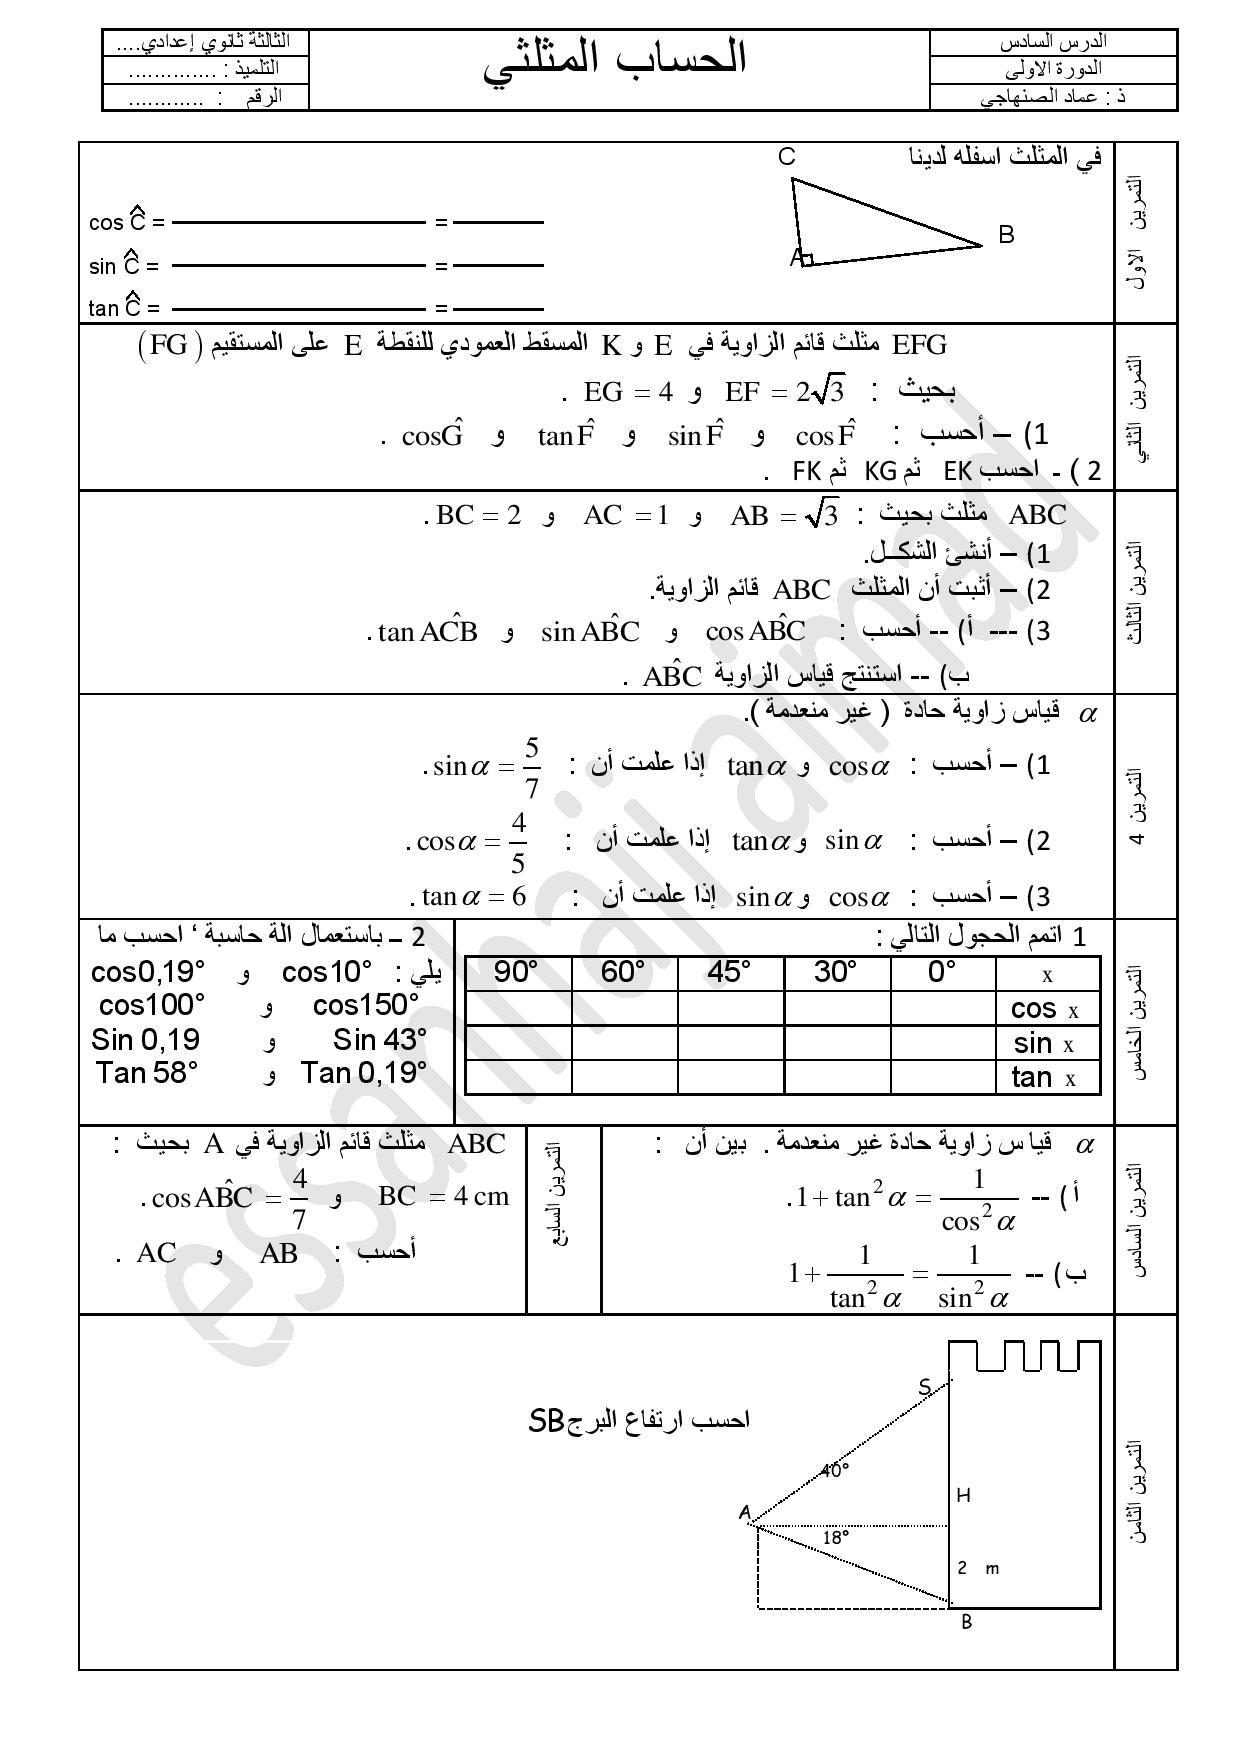 الدرس السادس
الدورة الاولى
ذ : عماد الصنهاجي
الحساب المثلثي
الثالثة ثانوي إعدادي....
التلميذ : ..............
الرقم : ............
التمرين الاول
في المثلث اسفله لدينا
C
B
A
cos Ĉ = ــــــــ = ــــــــ
sin Ĉ = ــــــــ = ــــــــ
tan Ĉ = ــــــــ = ــــــــ
التمرين الثاني
EFG مثلث قائم الزاوية في E و K المسقط العمودي للنقطة E على المستقيم (FG)
بحيث : EF = 2√3 و EG = 4 .
1) – أحسب : cos F̂ و sin F̂ و tan F̂ و cosĜ .
2 ) - احسب EK ثم KG ثم FK .
التمرين الثالث
ABC مثلث بحيث : AB = √3 و AC = 1 و BC = 2 .
1) – أنشئ الشكــل.
2) – أثبت أن المثلث ABC قائم الزاوية.
3) --- أ) -- أحسب : cos AB̂C و sin AB̂C و tan AĈB .
ب) -- استنتج قياس الزاوية AB̂C .
التمرين 4
α قياس زاوية حادة ( غير منعدمة ).
1) – أحسب : cosα و tanα إذا علمت أن : sinα = 5/7 .
2) – أحسب : sinα و tanα إذا علمت أن : cosα = 4/5 .
3) – أحسب : cosα و sinα إذا علمت أن : tanα = 6 .
التمرين الخامس
1 اتمم الحجول التالي :
x 0° 30° 45° 60° 90°
cos x
sin x
tan x
2 – باستعمال الة حاسبة ‘ احسب ما
يلي : cos10° و cos0,19°
cos150° و cos100°
Sin 43° و Sin 0,19
Tan 0,19° و Tan 58°
التمرين السادس
α قياس زاوية حادة غير منعدمة . بين أن :
أ ) -- 1 + tan² α = 1/cos² α .
ب) -- 1 + 1/tan² α = 1/sin² α
التمرين السابع
ABC مثلث قائم الزاوية في A بحيث :
BC = 4 cm و cos AB̂C = 4/7 .
أحسب : AB و AC .
التمرين الثامن
احسب ارتفاع البرج SB
S
40°
H
A
18°
2 m
B
essanhaji aimad